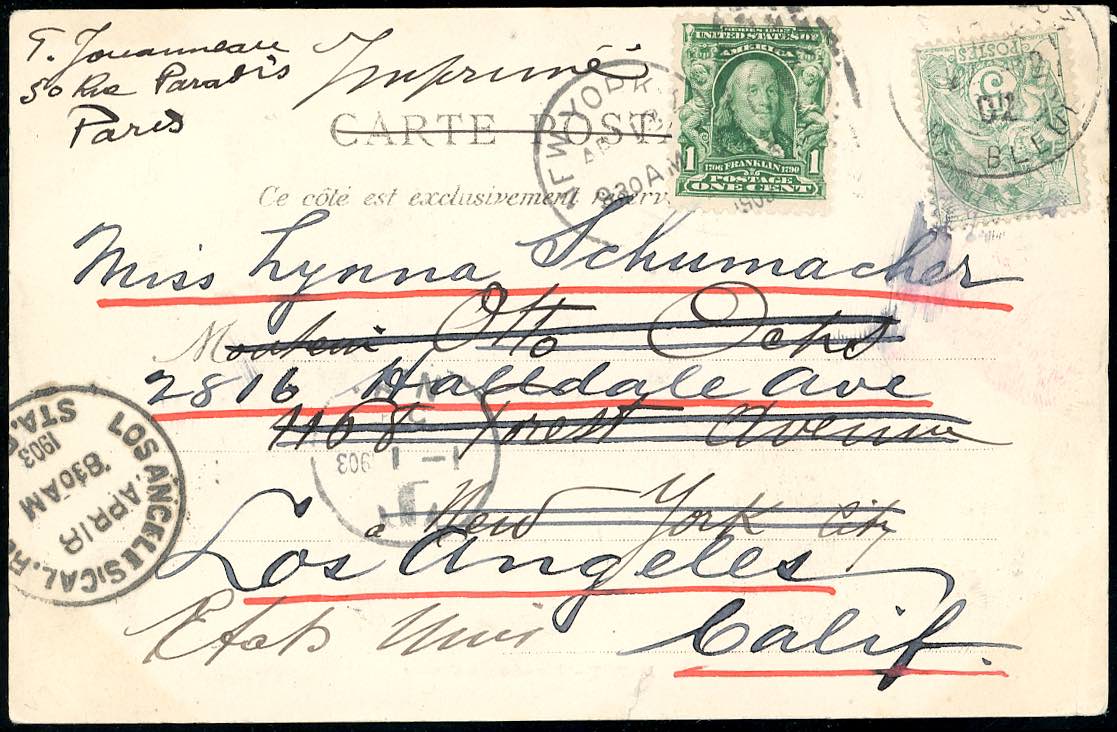 T. Jouanneau
50 Rue Paradis
Paris
Imprimé
CARTE POSTA
Ce côté est exclusivement réserv
SERIES 1902
UNITED STATES OF
AMERICA
1 1706 FRANKLIN 1790 1
POSTAGE
ONE CENT
POSTES
5
NEW YORK
AP
830 AM
1903
02
BLEUE
Miss Lynna Schumacher
Monsieur Otto Ochs
2816 Halldale Ave
1168 Forest Avenue
à New York City
Los Angeles
Etats Unis
Calif.
LOS ANGELES, CAL. RE
STA. C
APR 18
8 30 AM
1903
N
1
1903